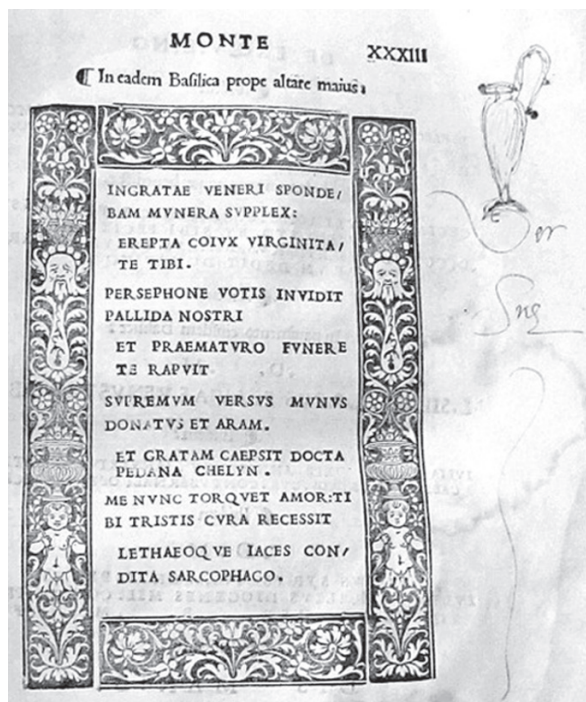 MONTE
XXXIII
¶ In eadem Basilica prope altare maius.
INGRATAE VENERI SPONDE/
BAM MVNERA SVPPLEX:
EREPTA COIVX VIRGINITA/
TE TIBI.
PERSEPHONE VOTIS INVIDIT
PALLIDA NOSTRI
ET PRAEMATVRO FVNERE
TE RAPVIT
SVPREMVM VERSVS MVNVS
DONATVS ET ARAM.
ET GRATAM CAEPSIT DOCTA
PEDANA CHELYN.
ME NVNC TORQVET AMOR:TI
BI TRISTIS CVRA RECESSIT
LETHAEOQVE IACES CON/
DITA SARCOPHACO.